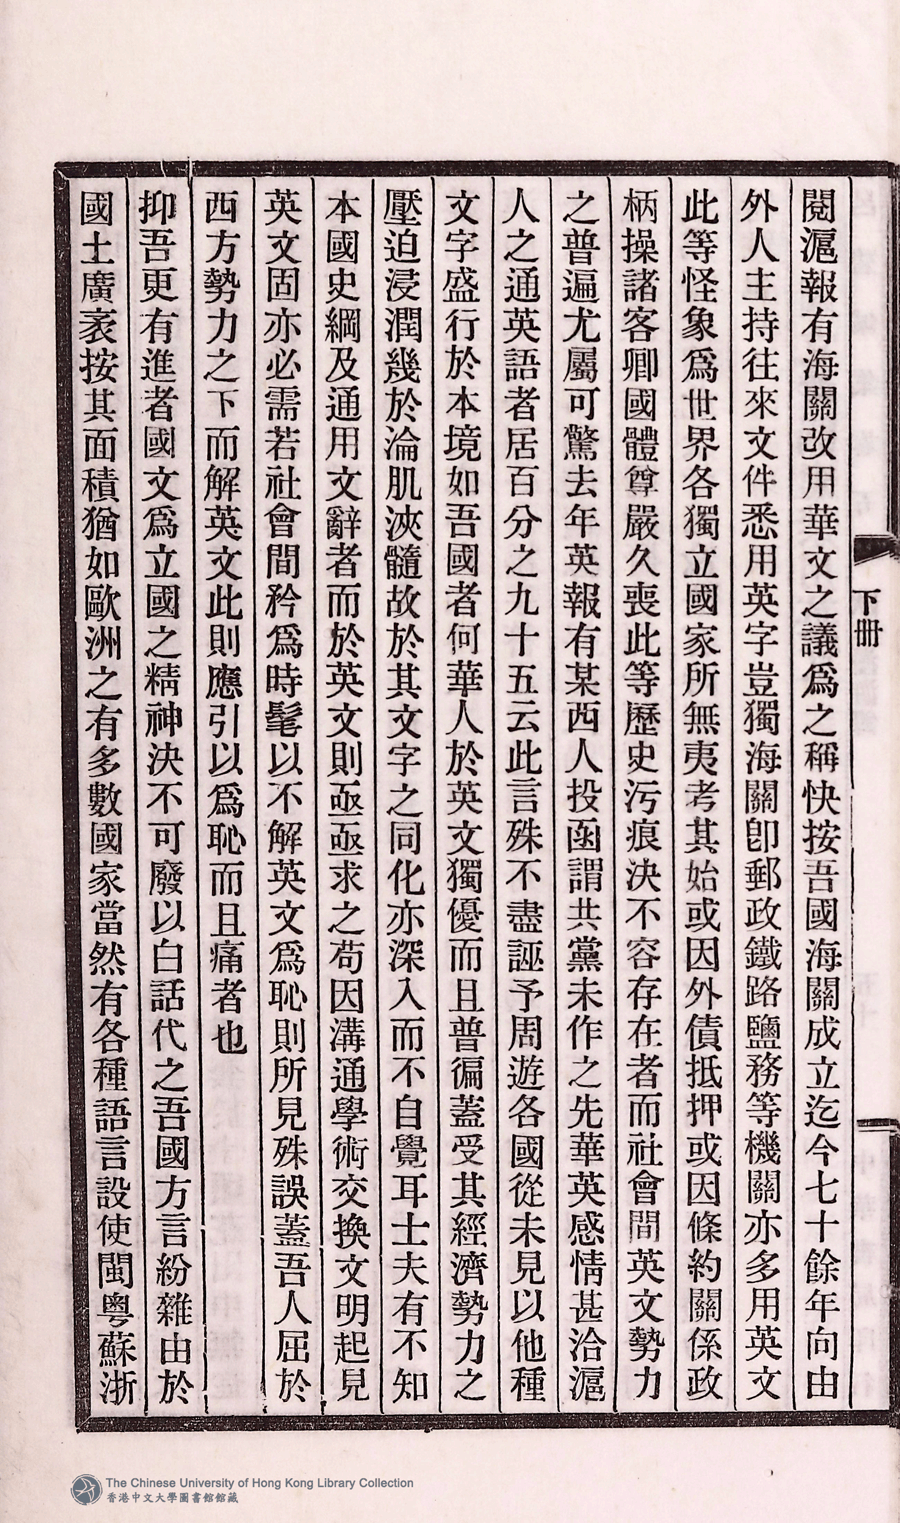 閱滬報有海關改用華文之議爲之稱快按吾國海關成立迄今七十餘年向由
外人主持往來文件悉用英字豈獨海關卽郵政鐵路鹽務等機關亦多用英文
此等怪象爲世界各獨立國家所無夷考其始或因外債抵押或因條約關係政
柄操諸客卿國體尊嚴久喪此等歷史污痕決不容存在者而社會間英文勢力
之普遍尤屬可驚去年英報有某西人投函謂共黨未作之先華英感情甚洽滬
人之通英語者居百分之九十五云此言殊不盡誣予周遊各國從未見以他種
文字盛行於本境如吾國者何華人於英文獨優而且普徧蓋受其經濟勢力之
壓迫浸潤幾於淪肌浹髓故於其文字之同化亦深入而不自覺耳士夫有不知
本國史綱及通用文辭者而於英文則亟亟求之苟因溝通學術交換文明起見
英文固亦必需若社會間矜爲時髦以不解英文爲恥則所見殊誤蓋吾人屈於
西方勢力之下而解英文此則應引以爲恥而且痛者也
抑吾更有進者國文爲立國之精神決不可廢以白話代之吾國方言紛雜由於
國土廣袤按其面積猶如歐洲之有多數國家當然有各種語言設使閩粵蘇浙
下冊
The Chinese University of Hong Kong Library Collection
香港中文大學圖書館館藏